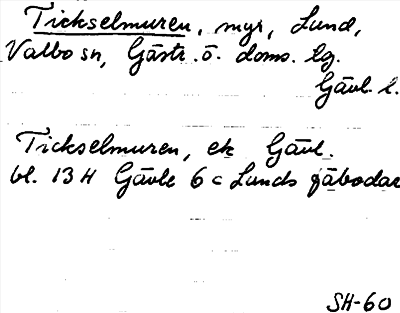 Tickselmuren, myr, Lund,
Valbo sn, Gästr. ö. doms. lg.
Gävl. l.
Tickselmuren, ek Gävl.
bl. 13 H Gävle 6 c Lunds fäbodar
SH-60